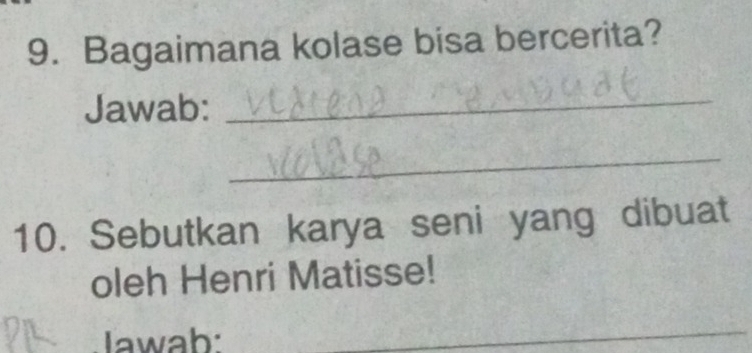 9. Bagaimana kolase bisa bercerita?
Jawab: karena membuat
kolase
10. Sebutkan karya seni yang dibuat
oleh Henri Matisse!
PR
Jawab: